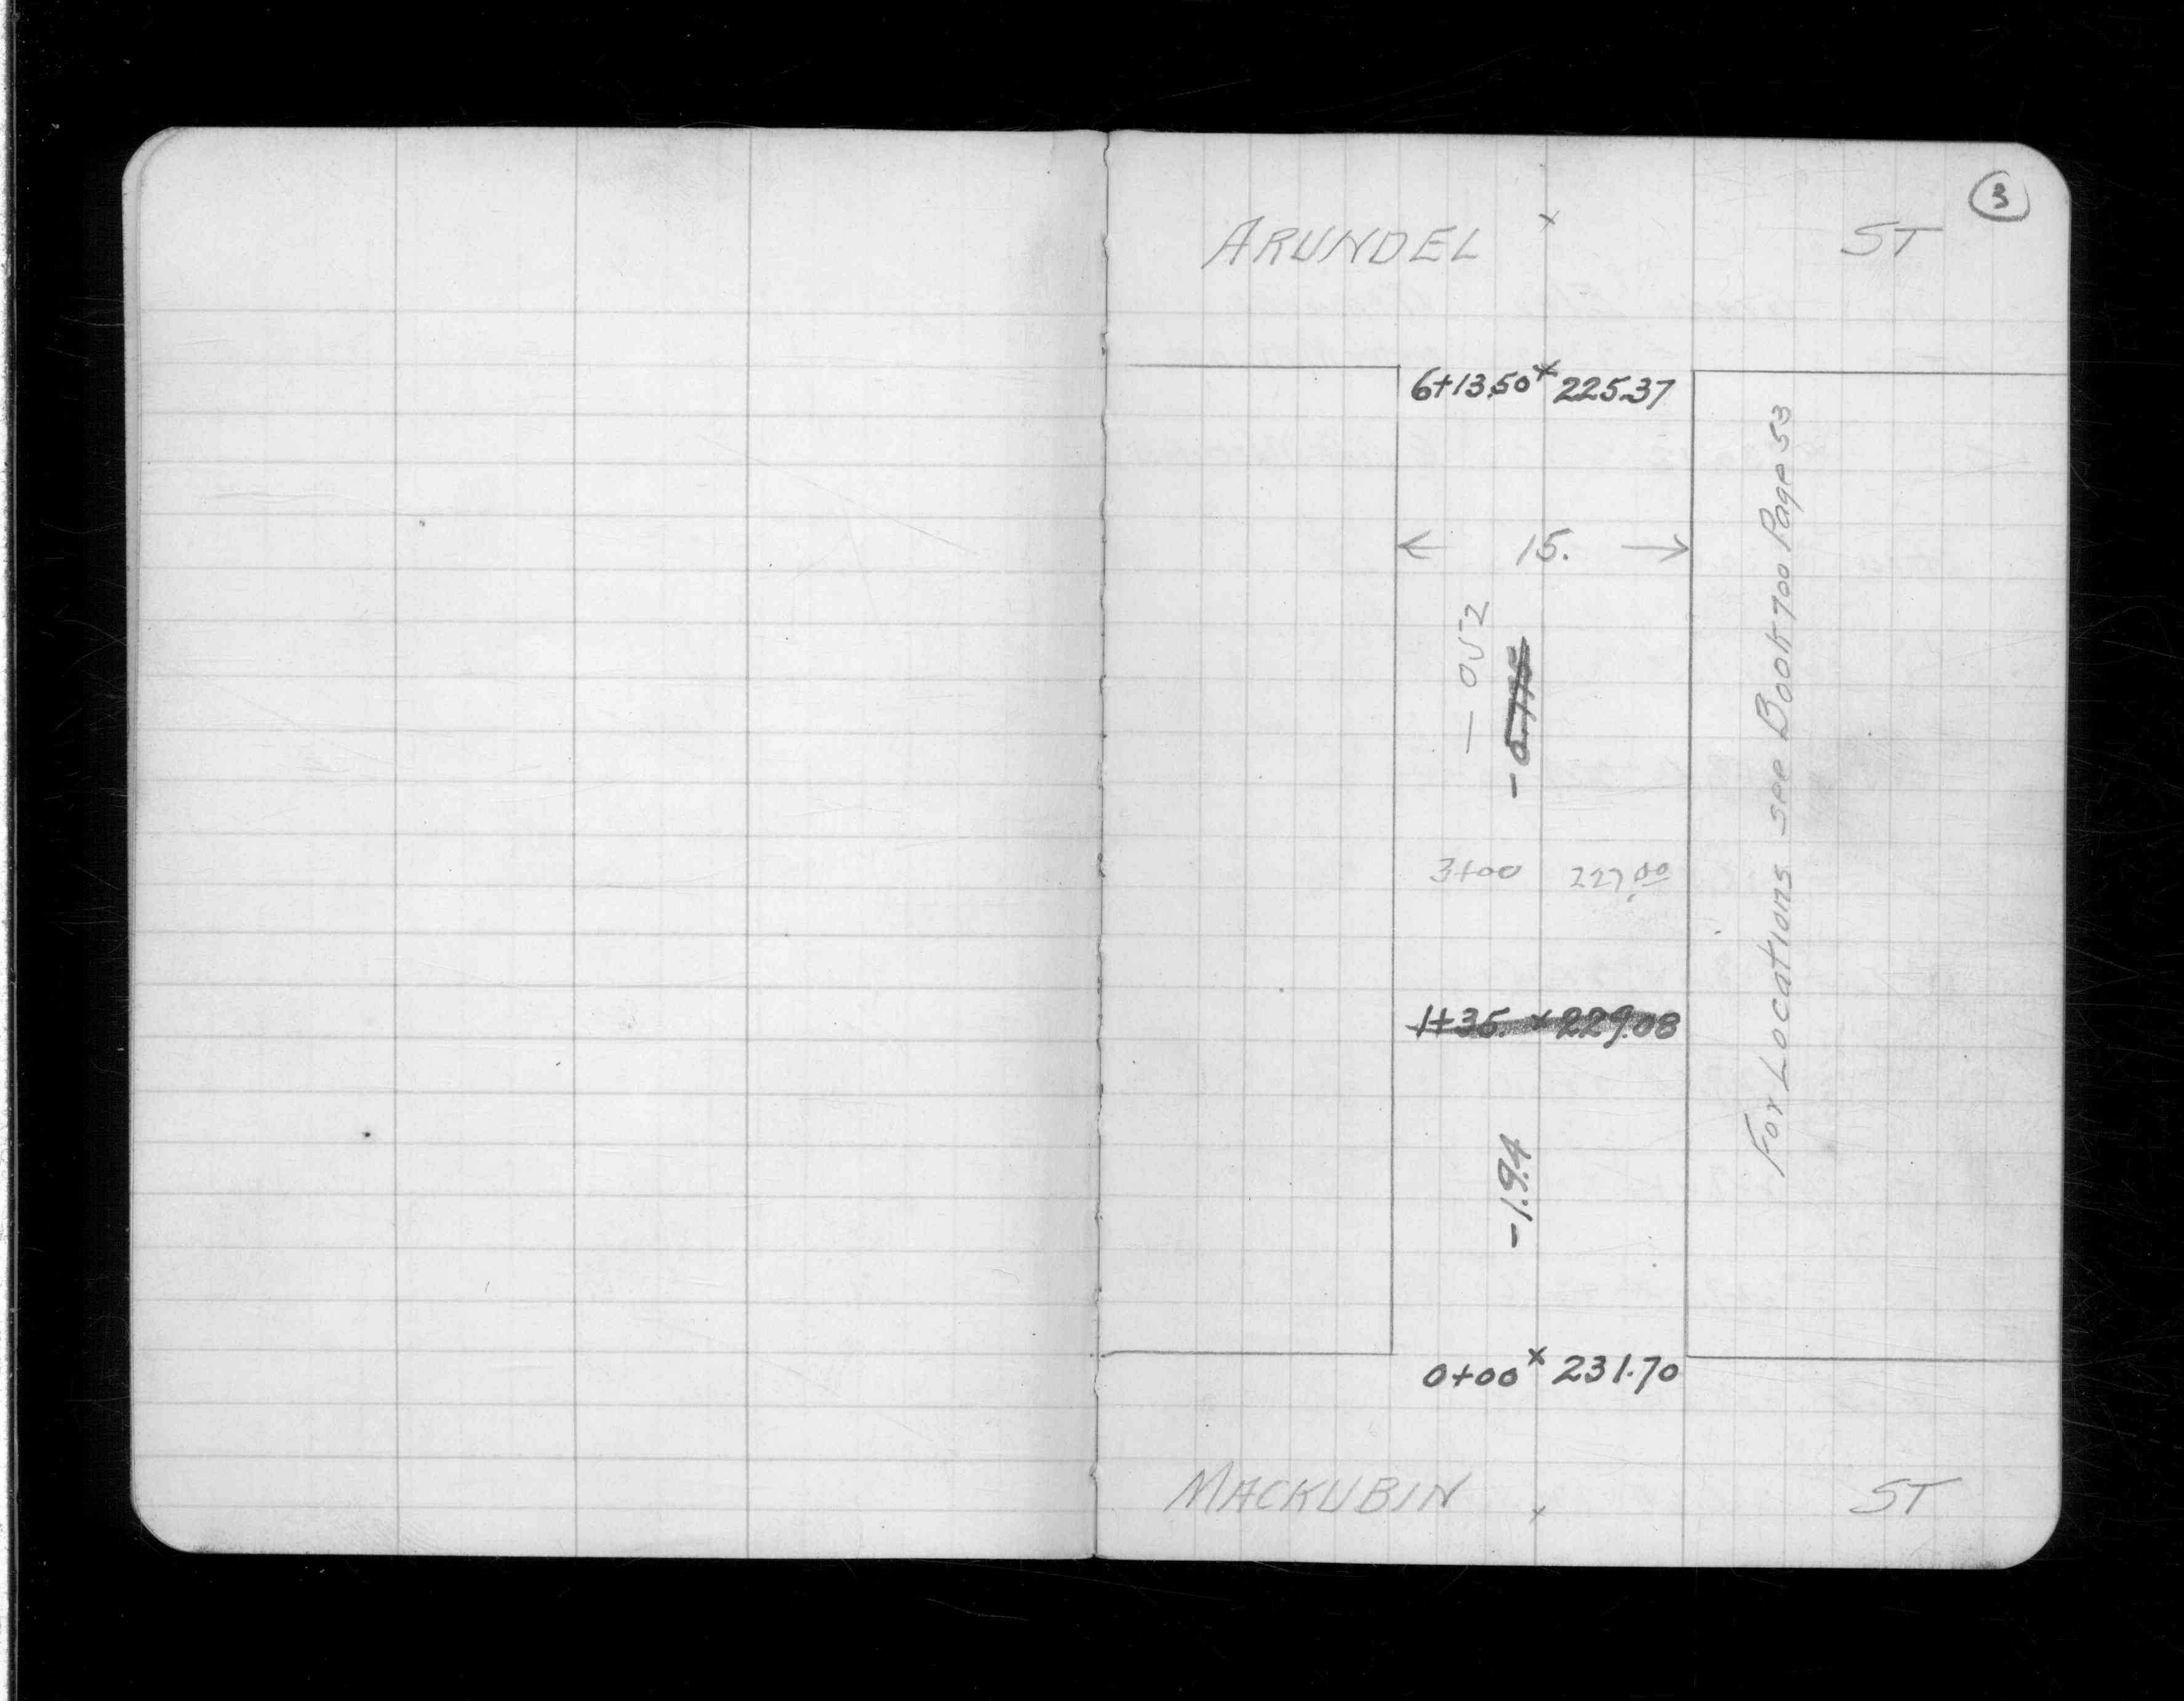 3
ARUNDEL ST
6+13.50 x 225.37
← 15. →
- 0.52
3+00 227.00
1+35. x 229.08
-1.94
0+00 x 231.70
MACKUBIN ST
For Locations see Book 700 Page 53